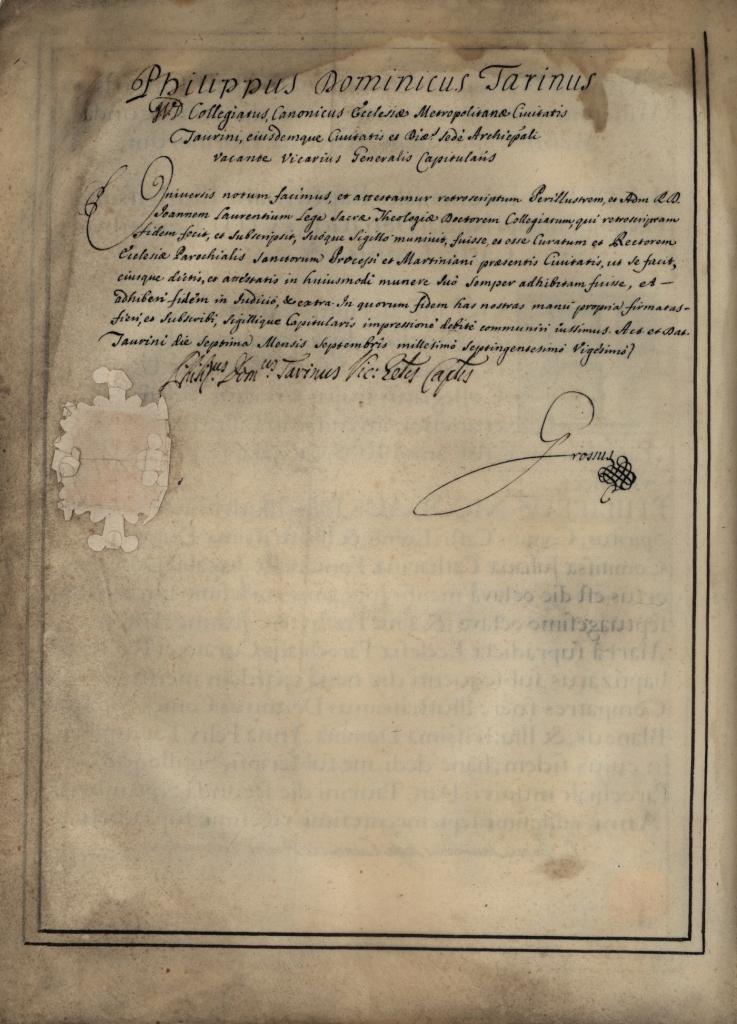 Philippus Dominicus Tarinus
Collegiatus, Canonicus Ecclesiæ Metropolitanæ Civitatis
Taurini, eiusdemque Civitatis et Diæ. sede Archiepāli
vacante Vicarius Generalis Capitularis
Universis notum facimus, et attestamur retroscriptum Perillustrem, et Adm R.D.
Joannem Laurentium Lega Sacræ Theologiæ Doctorem Collegiatum, qui retroscriptam
fidem fecit, et subscripsit, suoque Sigillo munivit, fuisse, et esse Curatum et Rectorem
Ecclesiæ Parochialis Sanctorum Processi et Martiniani præsentis Civitatis, ut se facit,
eiusque dictis, et attestatis in huiusmodi munere suo semper adhibitam fuisse, et
adhiberi fidem in Judicio, & extra. In quorum fidem has nostras manu propria firmatas
fieri, et subscribi, Sigillique Capitularis impressione debite communiri iussimus. Act. et Dat.
Taurini die septima Mensis Septembris millesimo septingentesimo Vigesimo
Philipus. Domus. Tarinus Vic: Glis Caplis
Grossus